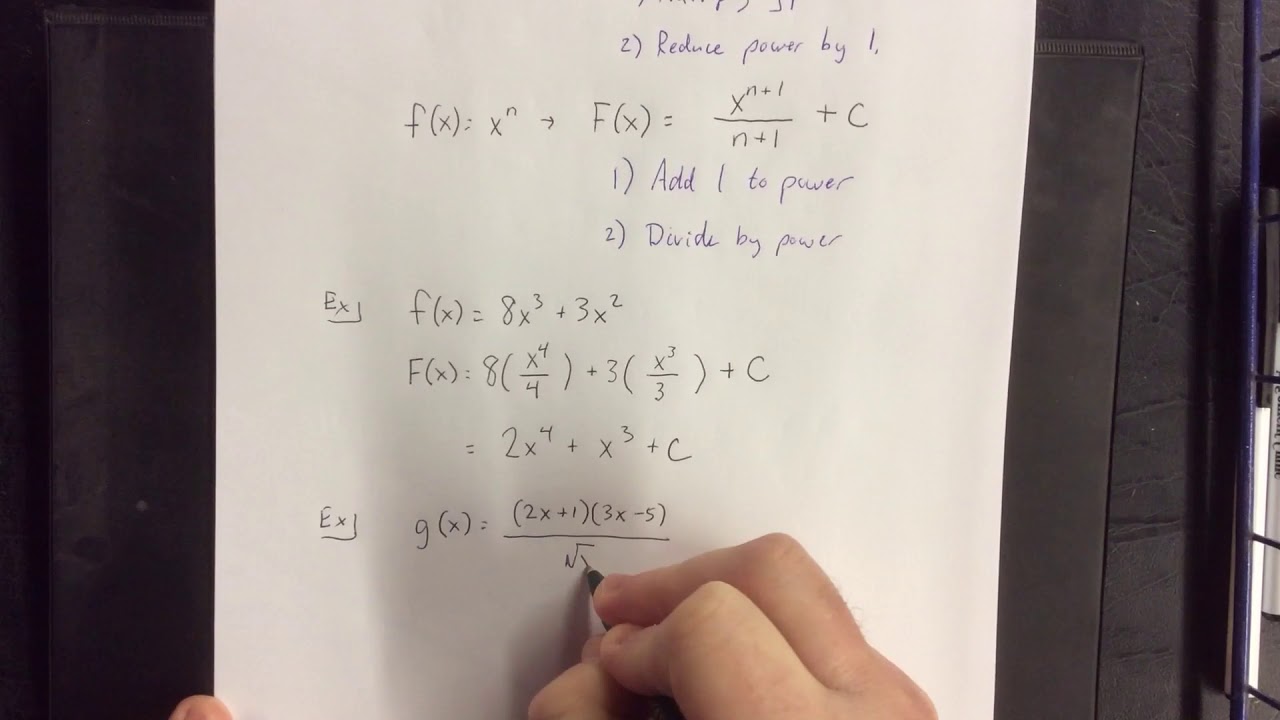 2) Reduce power by 1.
f(x) = xⁿ → F(x) = x^(n+1)/(n+1) + C
1) Add 1 to power
2) Divide by power
Ex] f(x) = 8x³ + 3x²
F(x) = 8(x⁴/4) + 3(x³/3) + C
= 2x⁴ + x³ + C
Ex] g(x) = (2x+1)(3x-5)/√